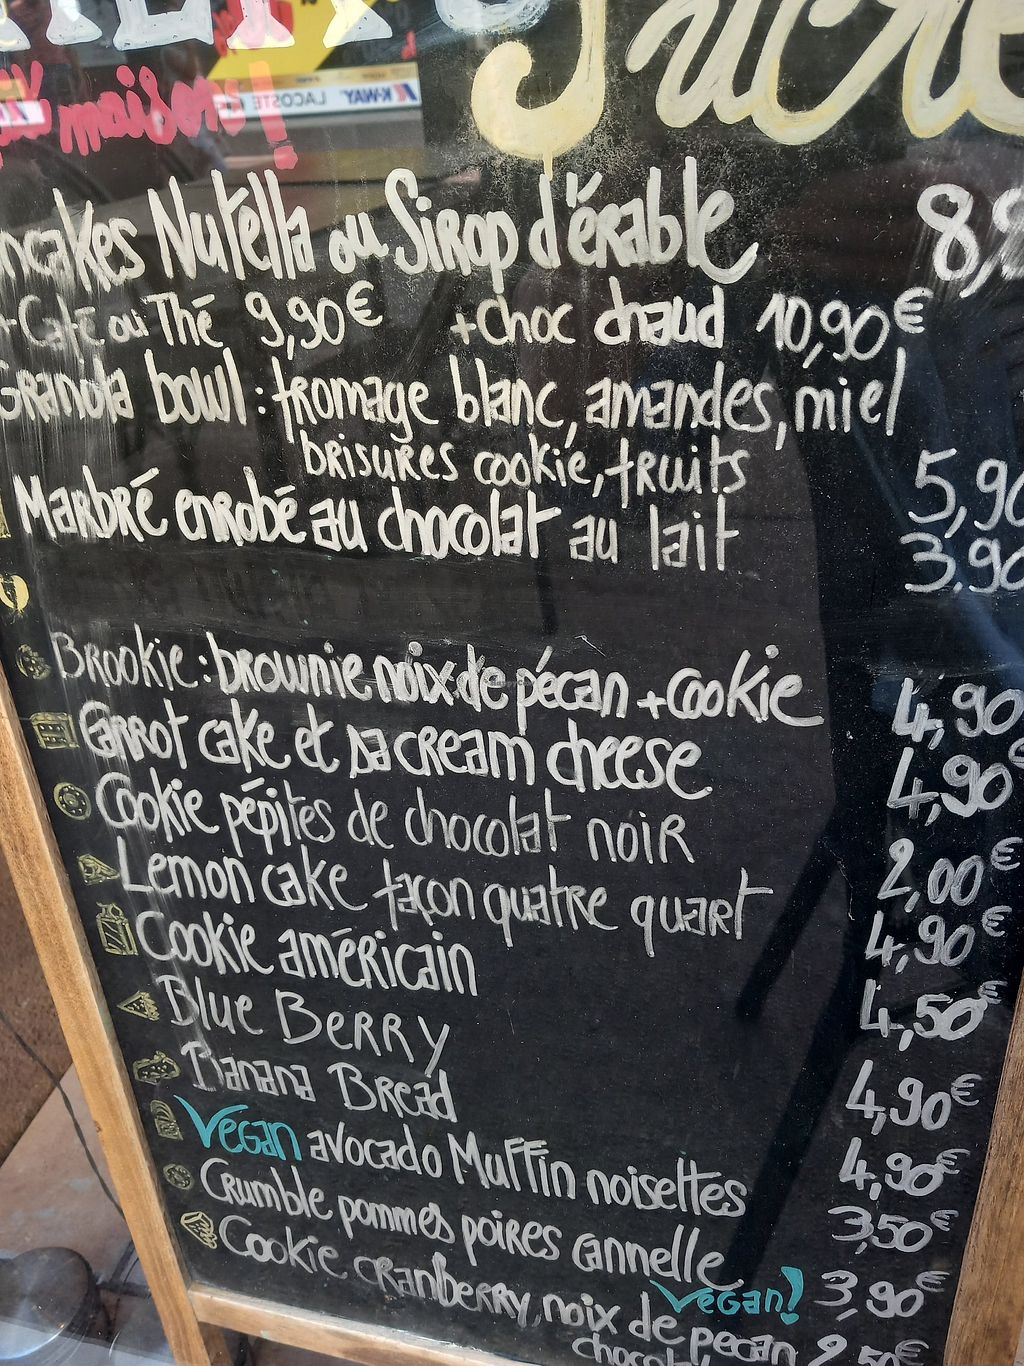 maison !
Sucré
LACOSTE K-WAY
ncakes Nutella ou Sirop d'érable 8,9
+ Café ou Thé 9,90€ + choc chaud 10,90€
Granola bowl : fromage blanc, amandes, miel
brisures cookie, fruits 5,90
Marbré enrobé au chocolat au lait 3.90
Brookie : brownie noix de pécan + cookie 4,90
Carrot cake et sa cream cheese 4,90€
Cookie pépites de chocolat noir 2,00€
Lemon cake façon quatre quart 4,90€
Cookie américain 4,50€
Blue Berry 4,90€
Banana Bread 4,90€
Vegan avocado Muffin noisettes 3,50€
Crumble pommes poires cannelle 3,90€
Vegan!
Cookie cranberry, noix de pecan 2,50€
chocolat